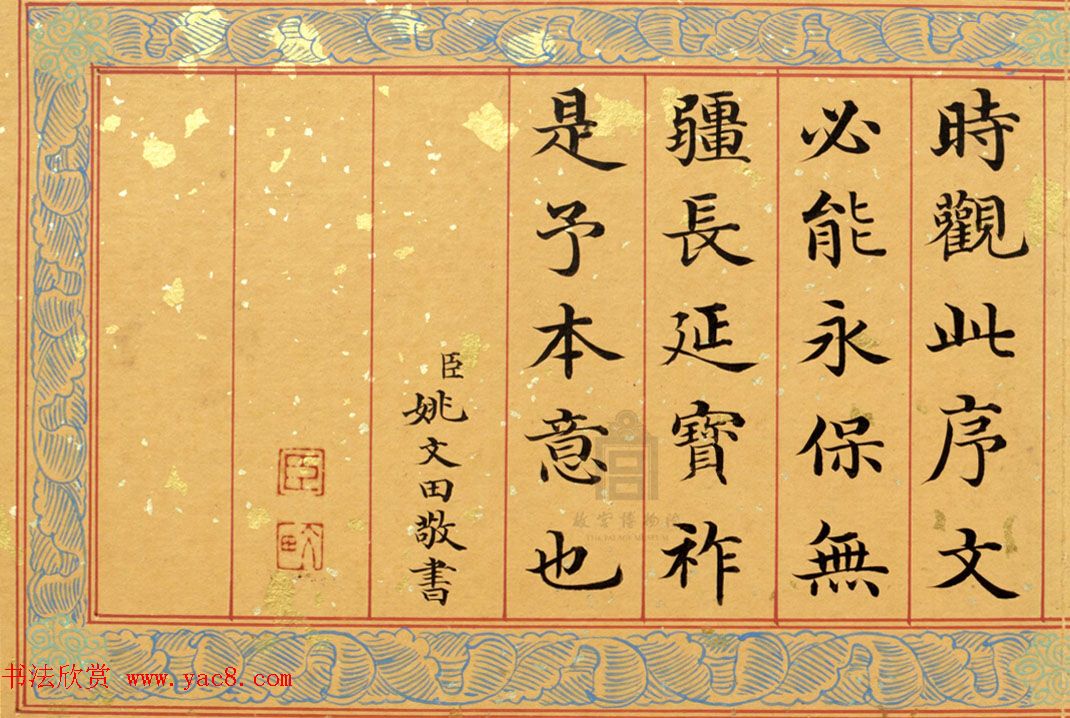 時觀此序文
必能永保無
疆長延寶祚
是予本意也
臣姚文田敬書
臣
故宫博物院
THE PALACE MUSEUM
书法欣赏 www.yac8.com